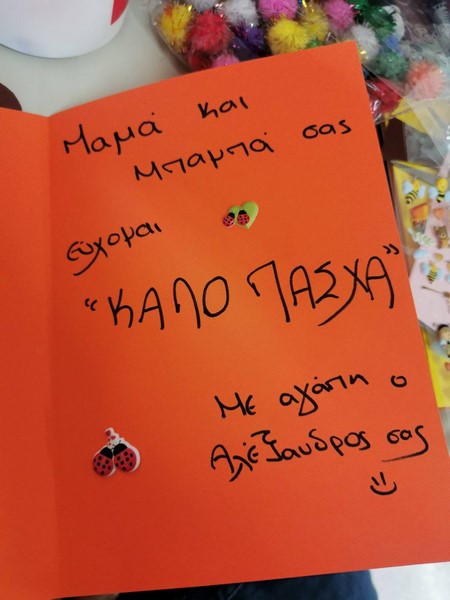 Μαμά και
Μπαμπά σας
εύχομαι
"ΚΑΛΟ ΠΑΣΧΑ"
Με αγάπη ο
Αλέξανδρος σας